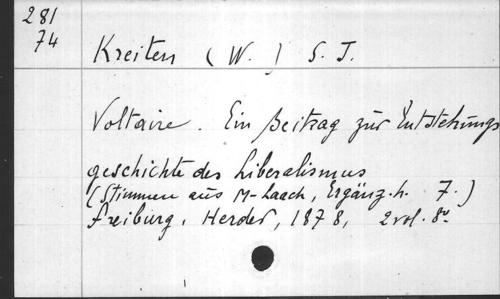 281
74
Kreiten (W.) S. J.
Voltaire. Ein Beitrag zur Entstehungs
geschichte des Liberalismus
(Stimmen aus M-Laach, Ergänz. h. 7.)
Freiburg, Herder, 1878, 2 vol. 8º